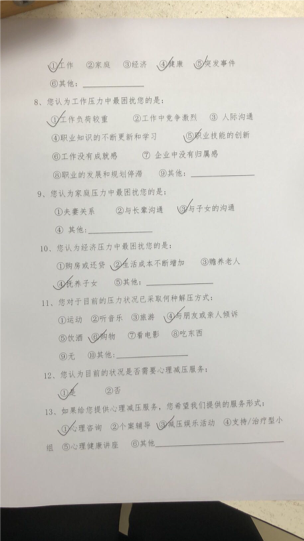 ①工作 ②家庭 ③经济 ④健康 ⑤突发事件
⑥其他：
8、您认为工作压力中最困扰您的是：
①工作负荷较重 ②工作中竞争激烈 ③ 人际沟通
④职业知识的不断更新和学习 ⑤职业技能的创新
⑥工作没有成就感 ⑦ 企业中没有归属感
⑧职业的发展和规划停滞 ⑨其他：
9、您认为家庭压力中最困扰您的是：
①夫妻关系 ②与长辈沟通 ③与子女的沟通
④ 其他：
10、您认为经济压力中最困扰您的是：
①购房或还贷 ②生活成本不断增加 ③赡养老人
④抚养子女 ⑤其他：
11、您对于目前的压力状况已采取何种解压方式：
①运动 ②听音乐 ③旅游 ④与朋友或亲人倾诉
⑤饮酒 ⑥购物 ⑦看电影 ⑧吃东西
⑨无 ⑩其他：
12、您认为目前的状况是否需要心理减压服务：
①是 ②否
13、如果给您提供心理减压服务，您希望我们提供的服务形式：
①心理咨询 ②个案辅导 ③减压娱乐活动 ④支持/治疗型小
组 ⑤心理健康讲座 ⑥其他